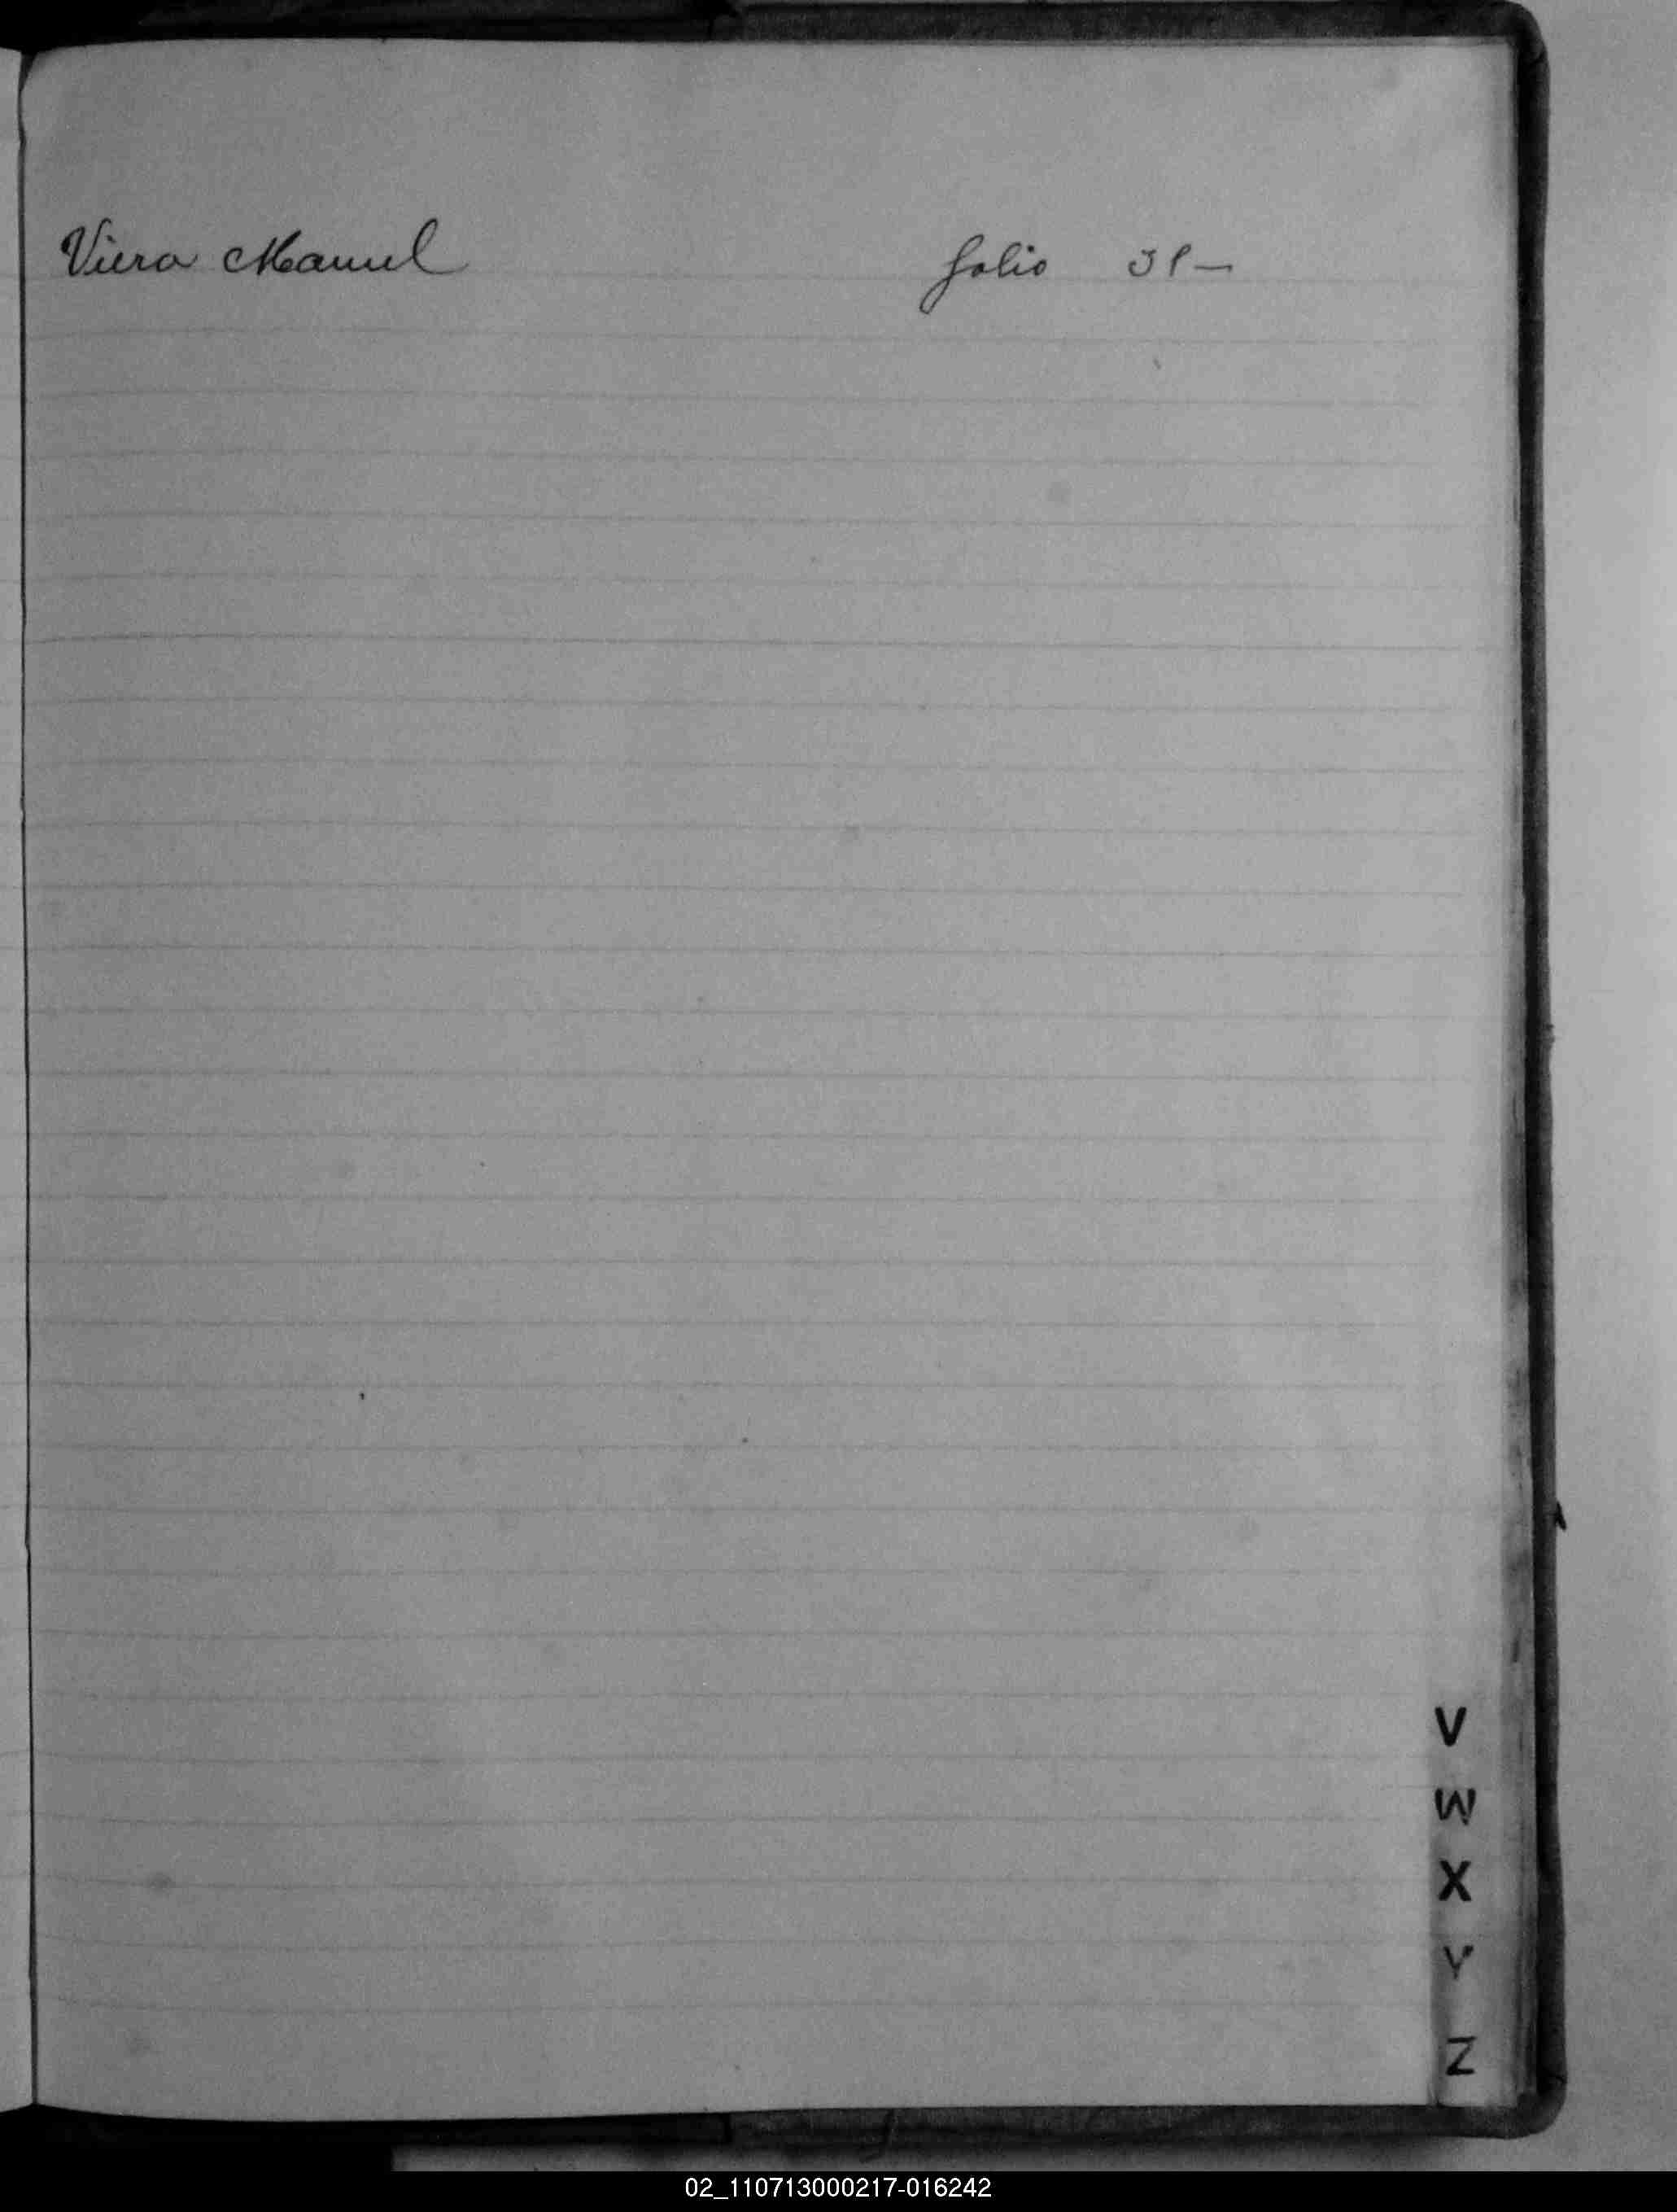 Viera Manuel folio 31 —
V
W
X
Y
Z
02_110713000217-016242